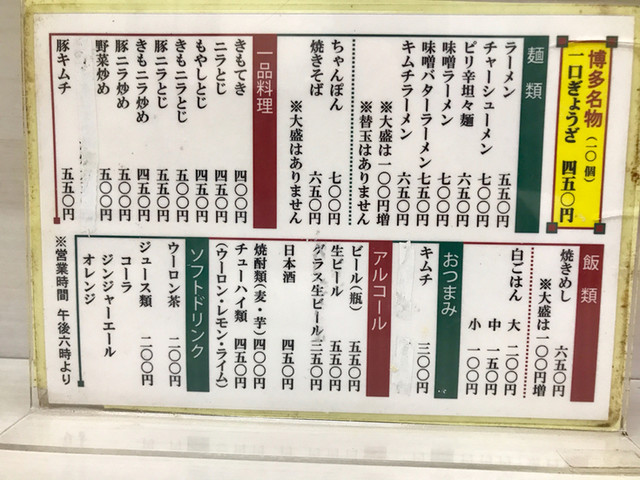 博多名物(一〇個)
一口ぎょうざ 四五〇円
麺類
ラーメン 五五〇円
チャーシューメン 七〇〇円
ピリ辛坦々麺 六五〇円
味噌ラーメン 七〇〇円
味噌バターラーメン 七五〇円
キムチラーメン 六五〇円
※大盛は一〇〇円増
※替玉はありません
ちゃんぽん 七〇〇円
焼きそば 六五〇円
※大盛はありません
一品料理
きもてき 四〇〇円
ニラとじ 四五〇円
もやしとじ 四五〇円
きもニラとじ 五〇〇円
豚ニラとじ 五五〇円
きもニラ炒め 五〇〇円
豚ニラ炒め 五五〇円
野菜炒め 五〇〇円
豚キムチ 五五〇円
飯類
焼きめし 六五〇円
※大盛は一〇〇円増
白ごはん 大 二〇〇円
中 一五〇円
小 一〇〇円
おつまみ
キムチ 三〇〇円
アルコール
ビール(瓶) 五五〇円
生ビール 五五〇円
グラス生ビール 三五〇円
日本酒 四五〇円
焼酎類(麦・芋) 四〇〇円
チューハイ類 四五〇円
(ウーロン・レモン・ライム)
ソフトドリンク
ウーロン茶 二〇〇円
ジュース類 二〇〇円
コーラ
ジンジャーエール
オレンジ
※営業時間 午後六時より